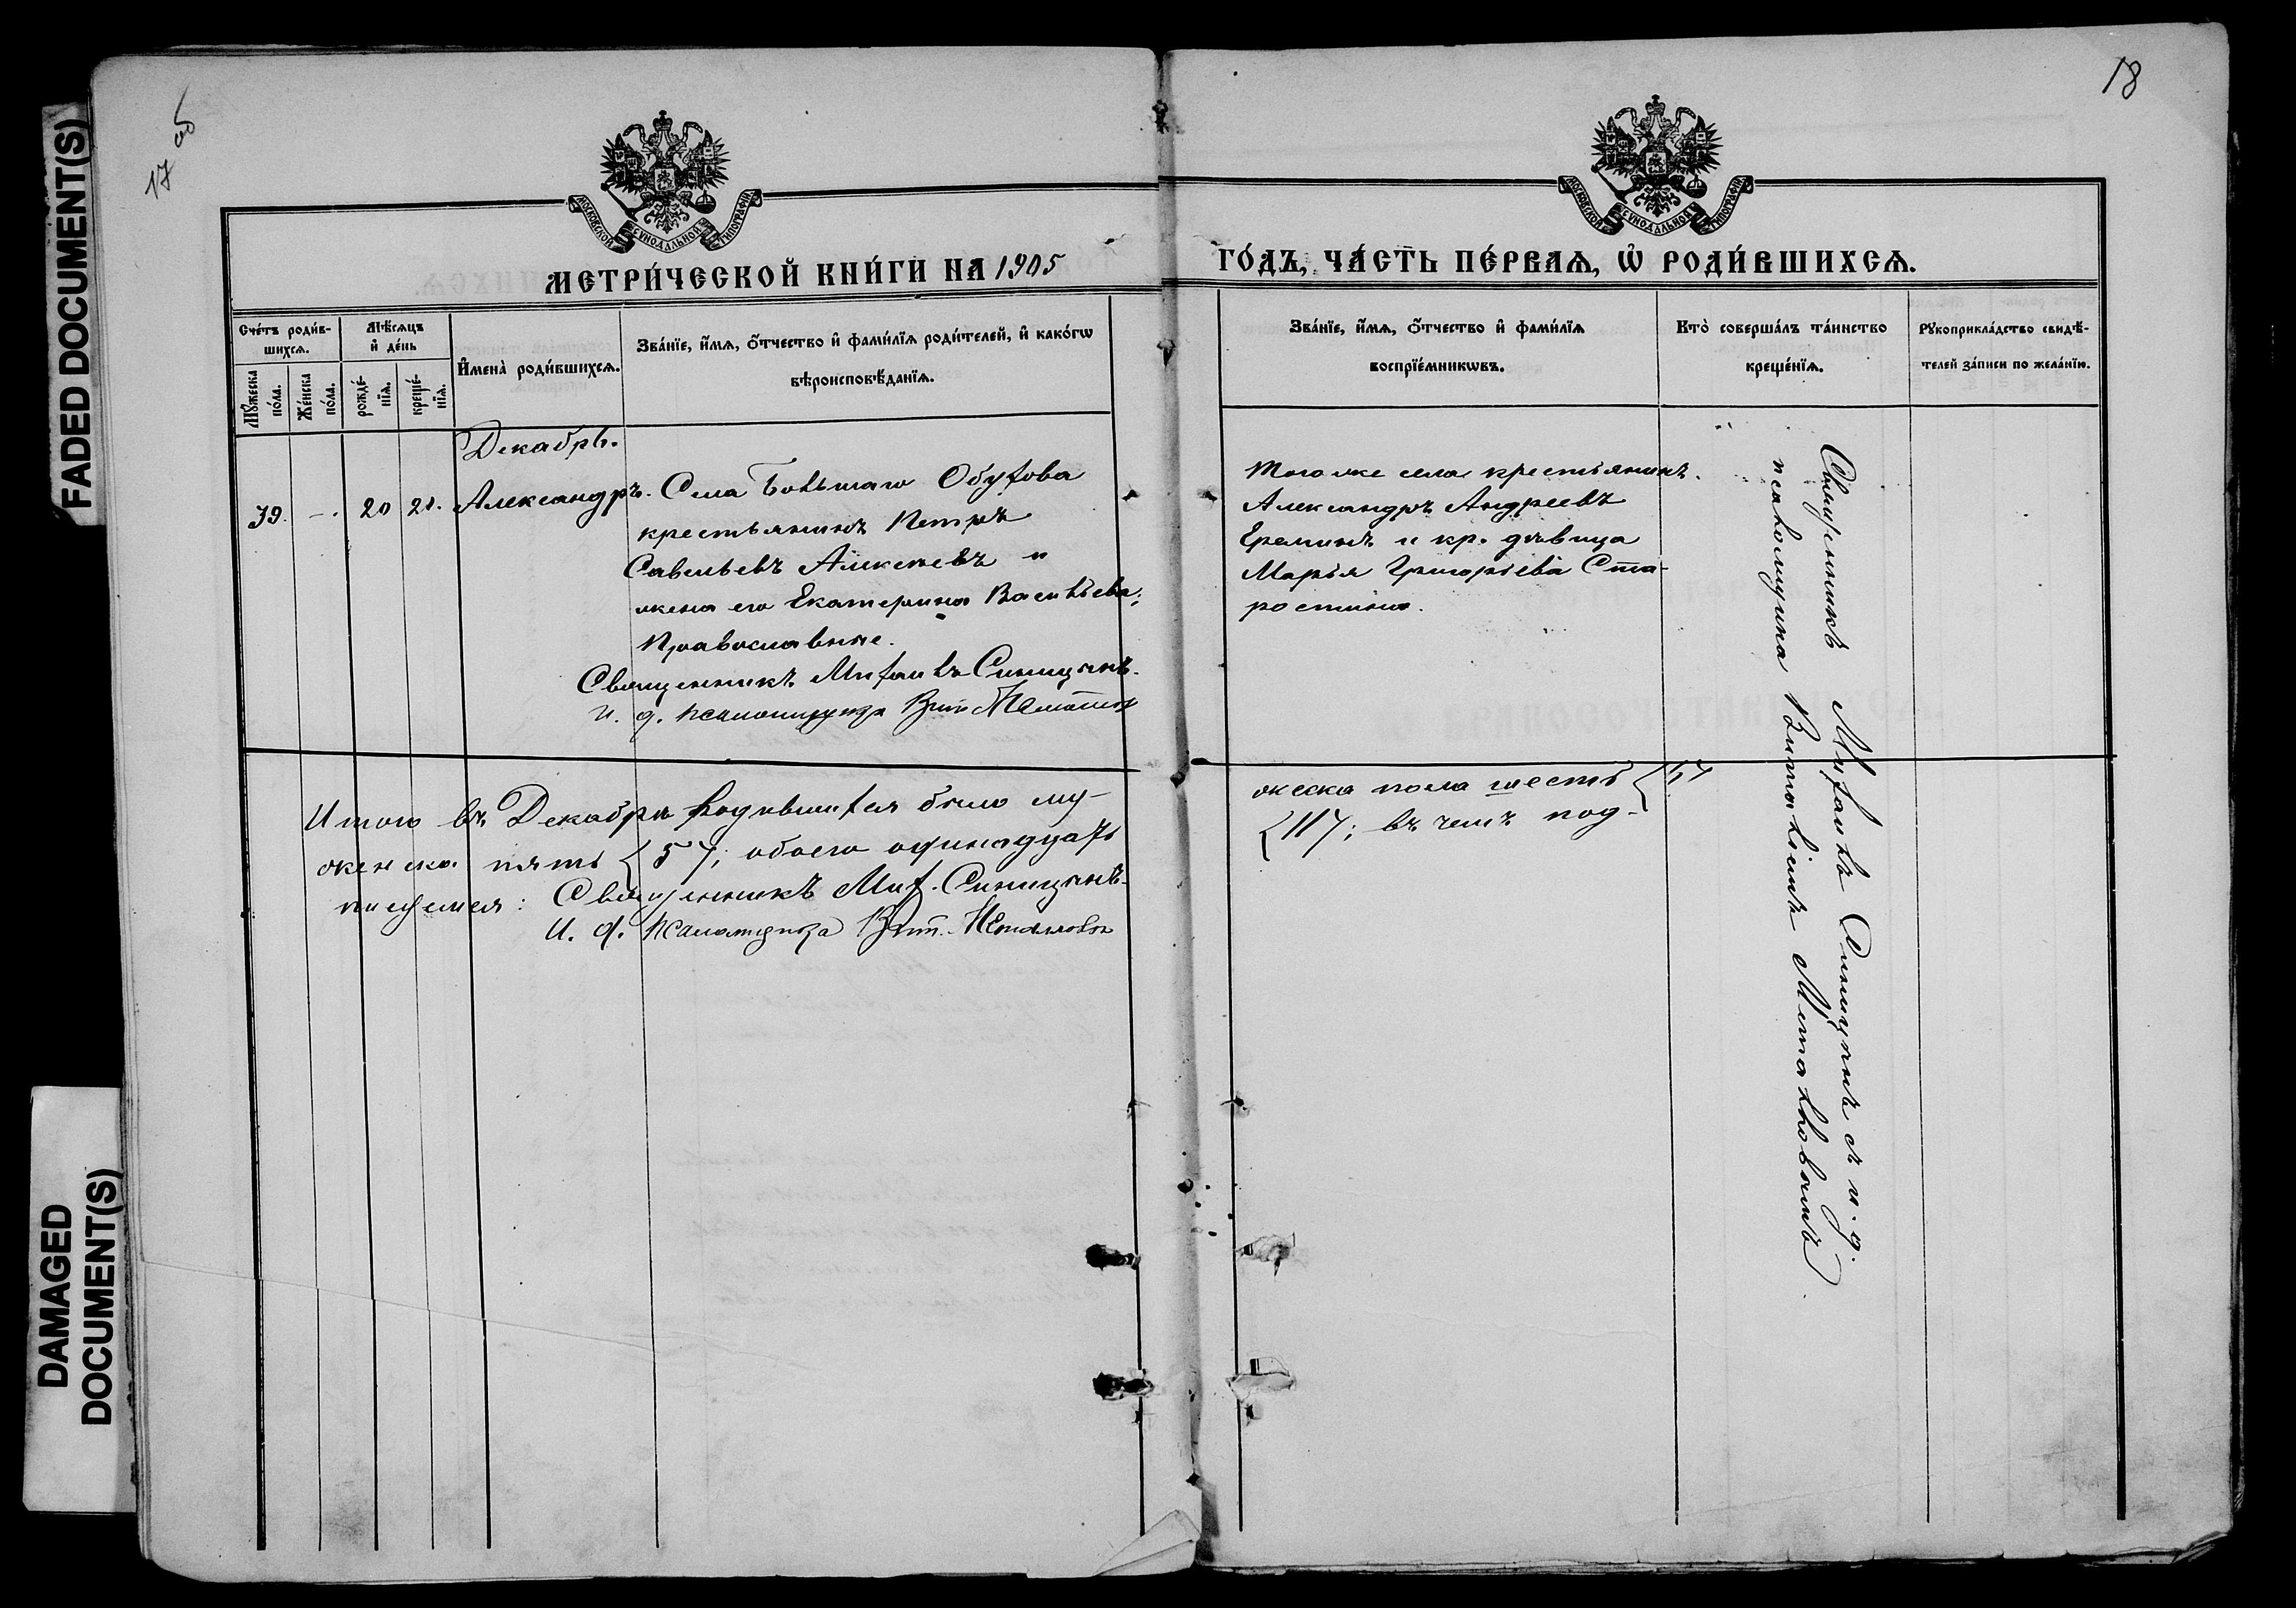 FADED DOCUMENT(S)
DAMAGED
DOCUMENT(S)
17 об
18
МОСКОВСКОЙ СУНОДАЛЬНОЙ ТИПОГРАФІИ
МОСКОВСКОЙ СУНОДАЛЬНОЙ ТИПОГРАФІИ
МЕТРИ́ЧЕСКОЙ КНИ́ГИ НА 1905
ГО́ДЪ, ЧА́СТЬ ПЕ́РВАѦ, Ѽ РОДИ́ВШИХСѦ.
Сче́тъ роди́в-
шихсѧ.
Мѣ́сѧцъ
и҆ де́нь
Мꙋ́жеска по́ла.
Же́нска по́ла.
рожде́-
нїѧ.
креще́-
нїѧ.
И҆мена̀ роди́вшихсѧ.
Зва́нїе, и҆́мѧ, ѻ҆́тчество и҆ фами́лїѧ роди́телей, и҆ како́гѡ
вѣроисповѣ́данїѧ.
Зва́нїе, и҆́мѧ, ѻ҆́тчество и҆ фами́лїѧ
воспрїе́мникѡвъ.
Кто̀ соверша́лъ та́инство
креще́нїѧ.
Рꙋкоприкла́дство свидѣ́-
телей за́писи по жела́нїю.
Декабрь.
39. — . 20 21. Александръ.
Села Большаго Обухова
крестьянинъ Петръ
Савельевъ Алексѣевъ и
жена его Екатерина Васильева;
Православные.
Священникъ Михаилъ Синицынъ.
И. д. псаломщика Вит
Того же села крестьянинъ.
Александръ Андреевъ
Ереминъ и кр. дѣвица
Марья Григорьева Ста-
ростина.
Священникъ Михаилъ Синицынъ съ и. д.
псаломщика Виталіемъ
Итого въ Декабрѣ родившихся было му-
жеска пола шесть {6}
женска пять {5}; обоего одинадцать
{11}; въ чемъ под-
писуемся: Священникъ Мих. Синицынъ.
И. д. псаломщика Вит.